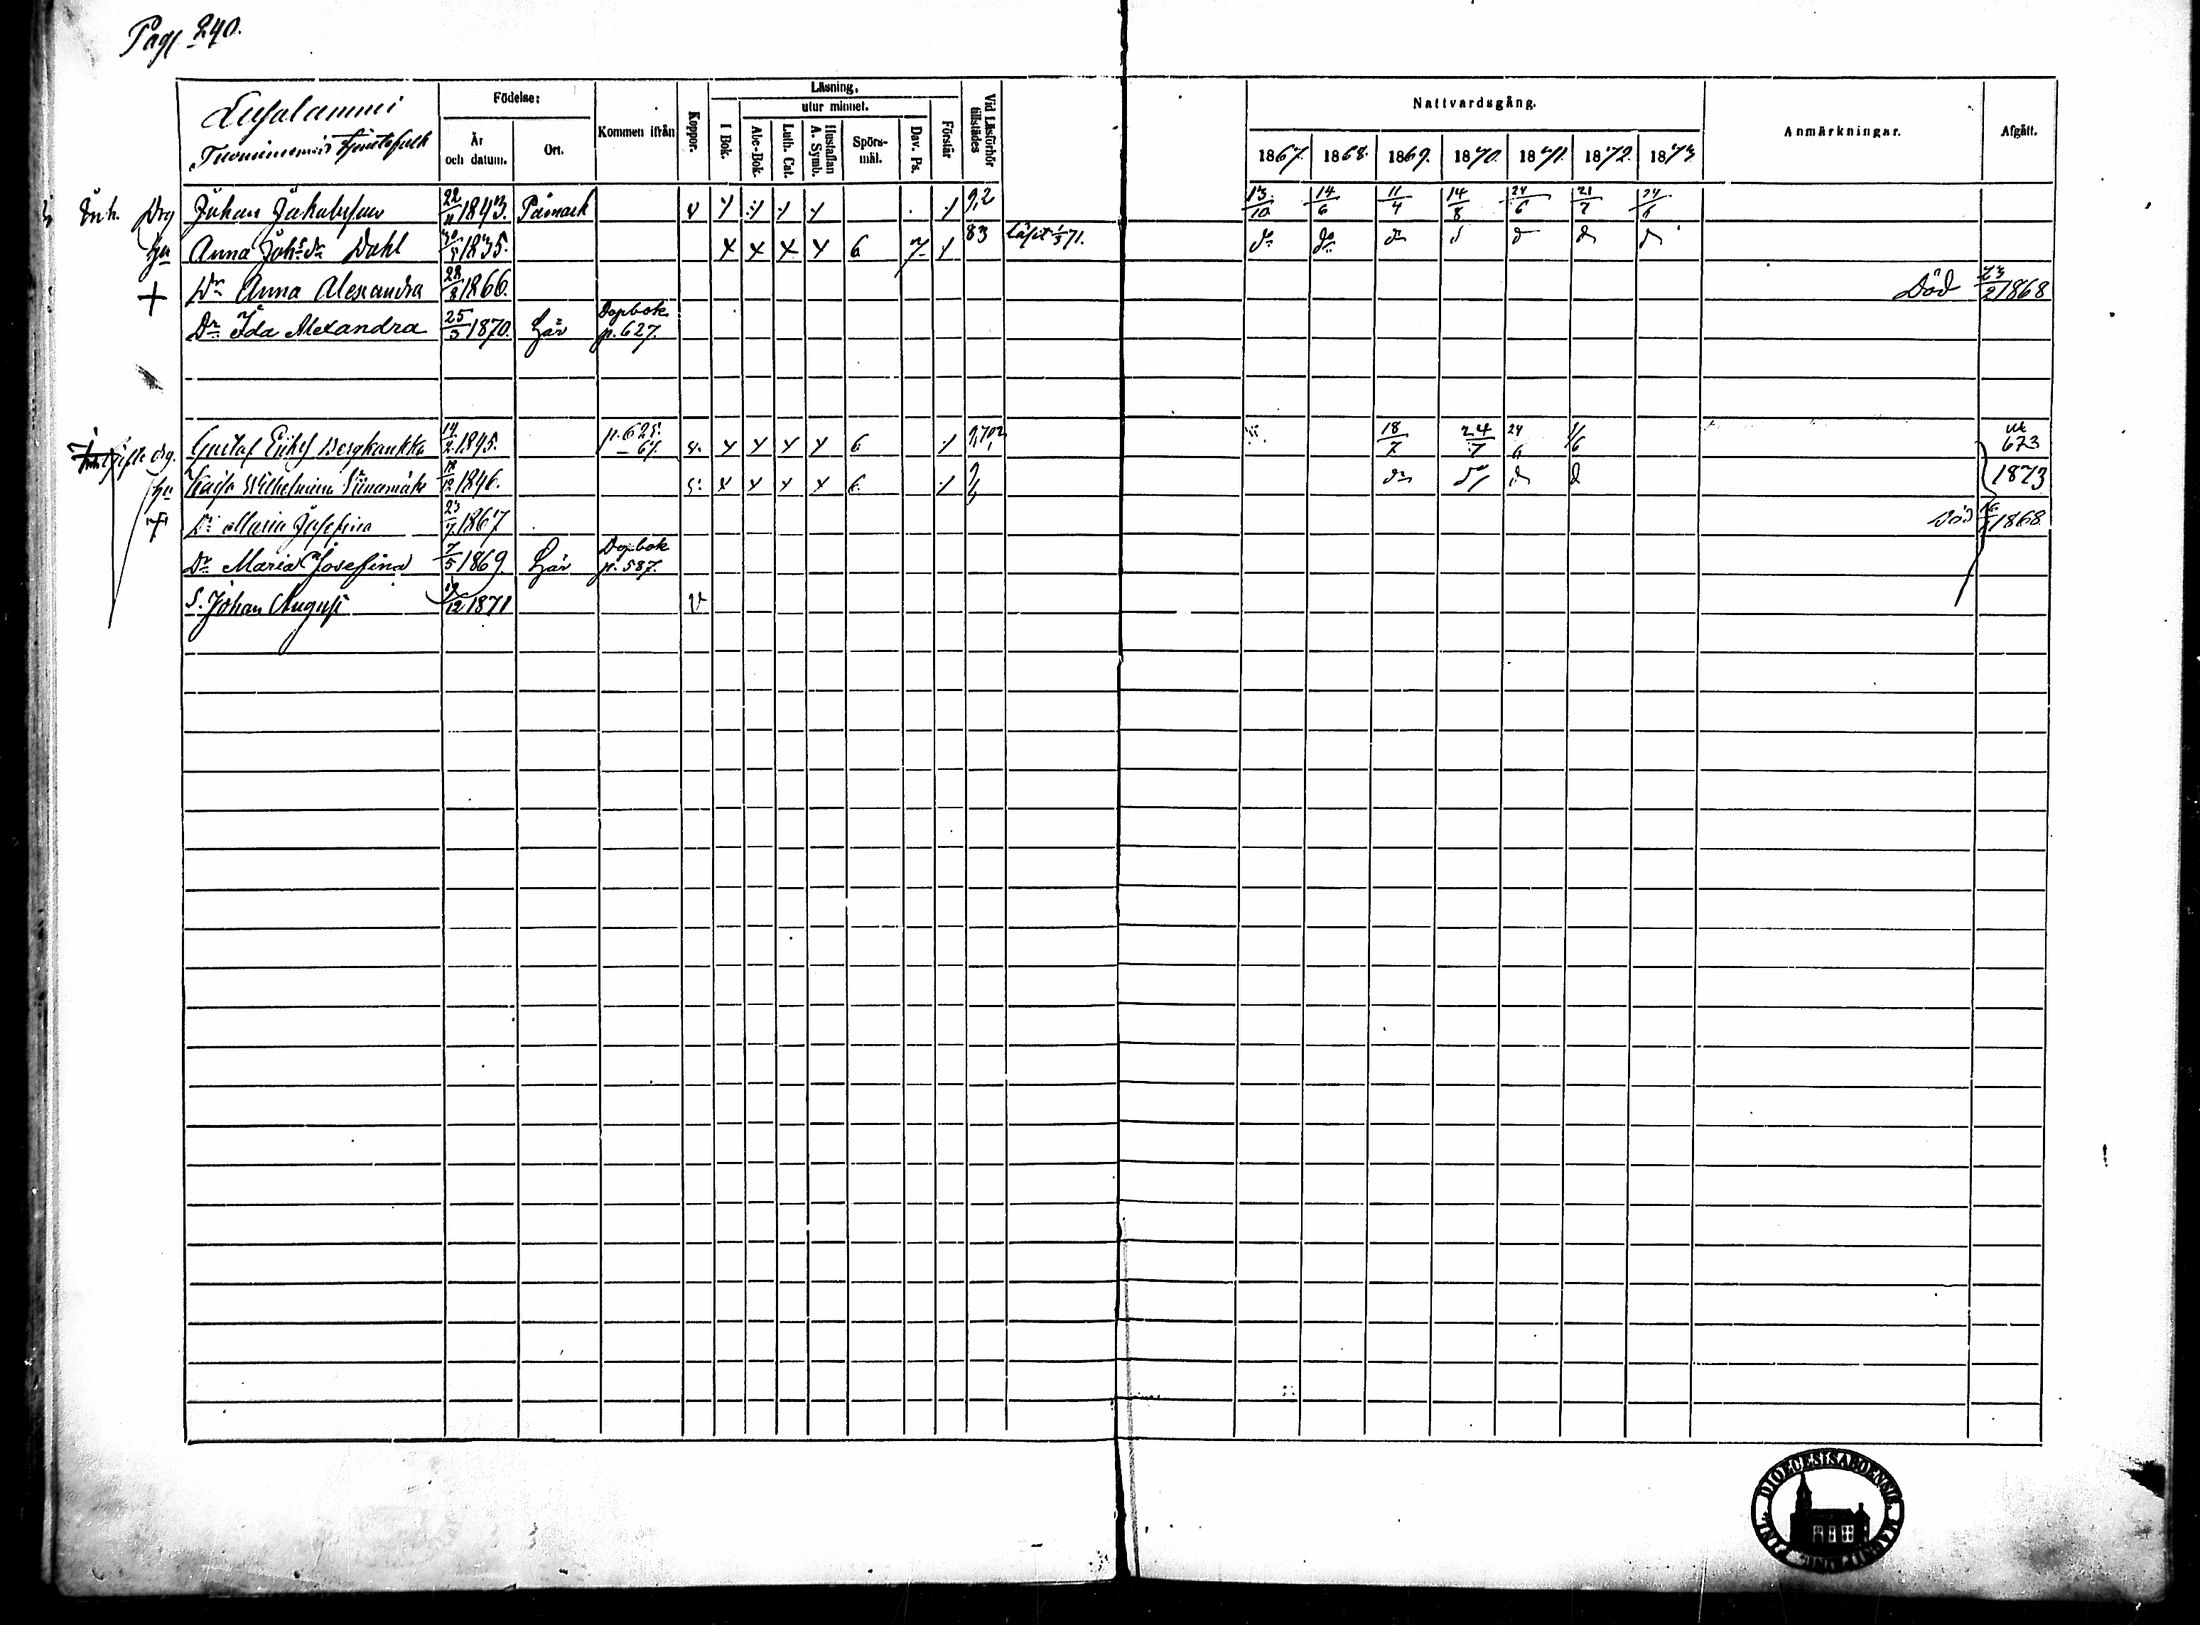 Pag. 240.
Födelse:
År och datum.
Ort.
Kommen ifrån
Koppor.
Läsning,
utur minnet.
I Bok.
Abc-Bok.
Luth. Cat.
Hustaflan A. Symb.
Spörs-mål.
Dav. Ps.
Förstår
Vid Läsförhör tillstädes
Nattvardsgång.
1867. 1868. 1869. 1870. 1871. 1872. 1873
Anmärkningar.
Afgått.
Inh. Drg Johan Jakobsson 22/11 1843. Påmark v 9,2 13/10 14/6 11/4 14/8 24/6 21/7 24/6
Hu Anna Johsdr Dahl 30/5 1835. 6 83 läst 1/3 71. do do do d d d d
+ Dr Anna Alexandra 28/8 1866. Död 23/2 1868
Dr Ida Alexandra 25/3 1870. Här Dopbok p. 627.
drg. Gustaf 14/2 1845. p. 625. 67. 6 18/7 24/7 24/6 1/6 ut 673
hu Wilhelmina 12 1846. 6 do do do d 1873
+ Dr Maria Josefina 23/7 1867 Död 1868.
Dr Maria Josefina 7/5 1869 Här Dopbok p. 587.
S. Johan August 12 1871 v
DIOECESIS ABOENSIS MAGNI DUC. FINL.